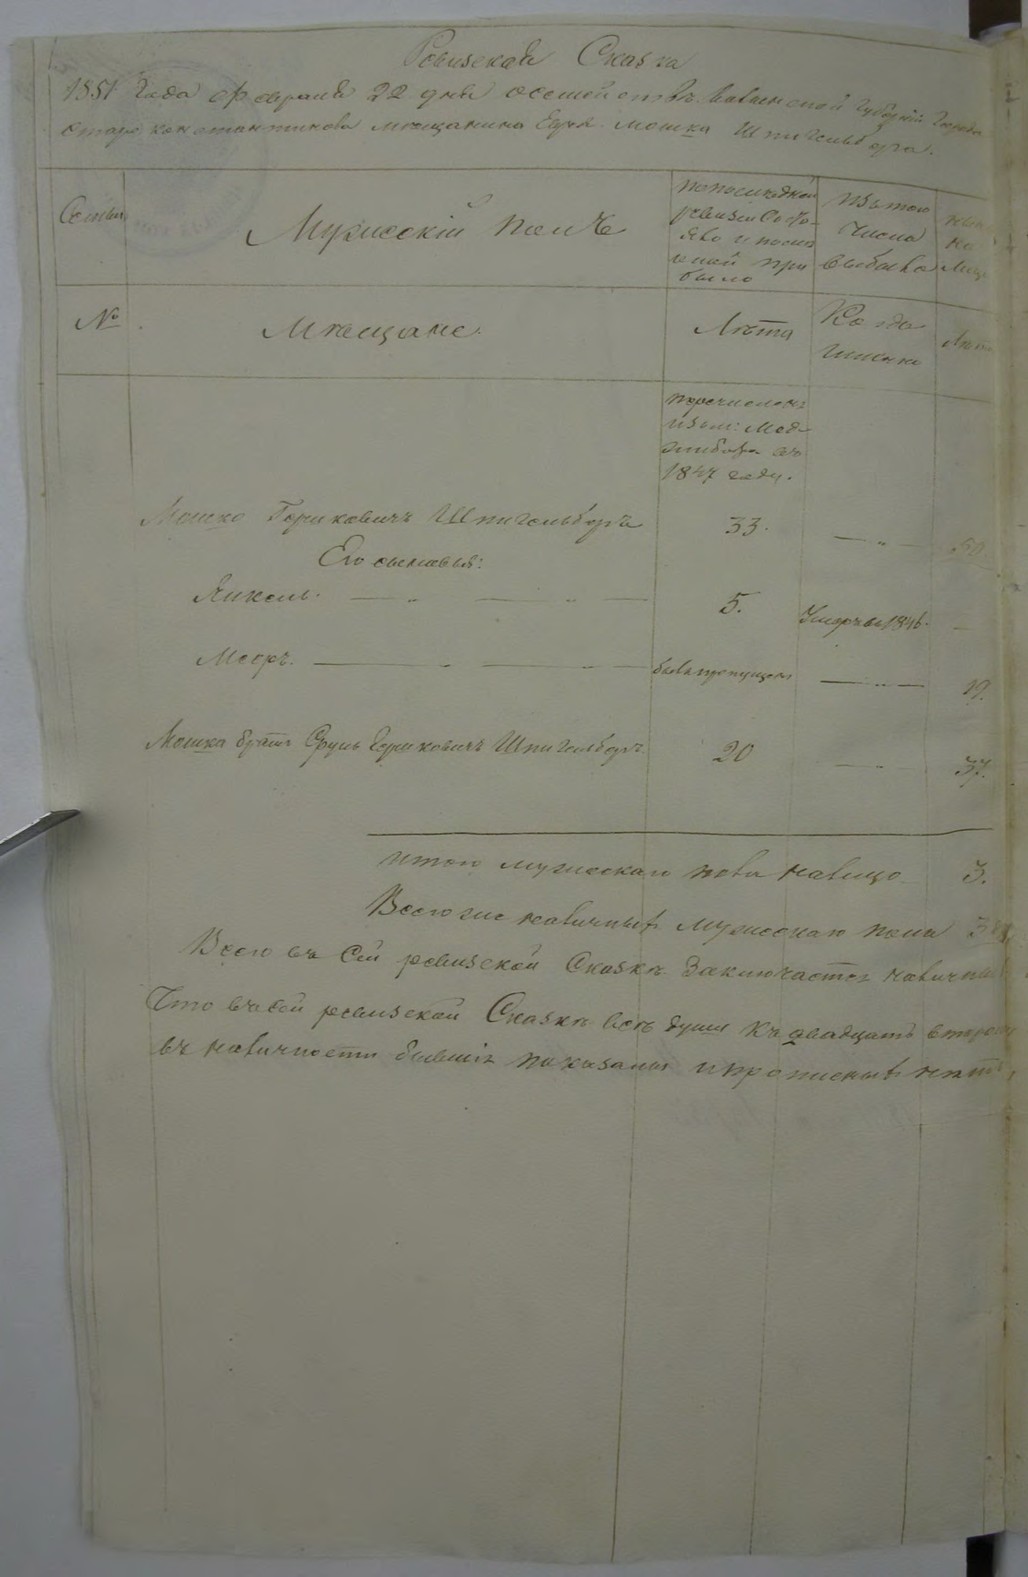 Ревизская Сказка
1851 Года февраля 22 дня о семействѣ Волынской Губерніи Города
Старо константинова мѣщанина Еврея Мошка Шпигельберга.
Семьи
Мужескій полъ
По последней
ревизіи состо-
яло и после
оной при
было
Изъ того
числа
выбыло
№
Мѣщане.
Лѣта
Когда
именно
Лѣта
перечисленъ
изъ м: Мед-
жибожа въ
1847 году.
Мошко Герцковичъ Шпигельберъ 33. — „ — 50
Его сыновья:
Янкель. — „ — — „ — 5. Умеръ въ 1846. —
Мееръ. — „ — бывъ пропущенъ — „ — 19.
Мошка братъ Сруль Герцковичъ Шпигельберъ 20 — „ — 37.
итого мужескаго пола налицо 3.
Всего же наличныхъ мужескаго пола 3
Всего въ сей ревизской Сказкѣ заключается наличныхъ
Что въ сей ревизской Сказкѣ всѣ души къ двадцать второму
въ наличности бывшіе показаны и прописныхъ нѣтъ,